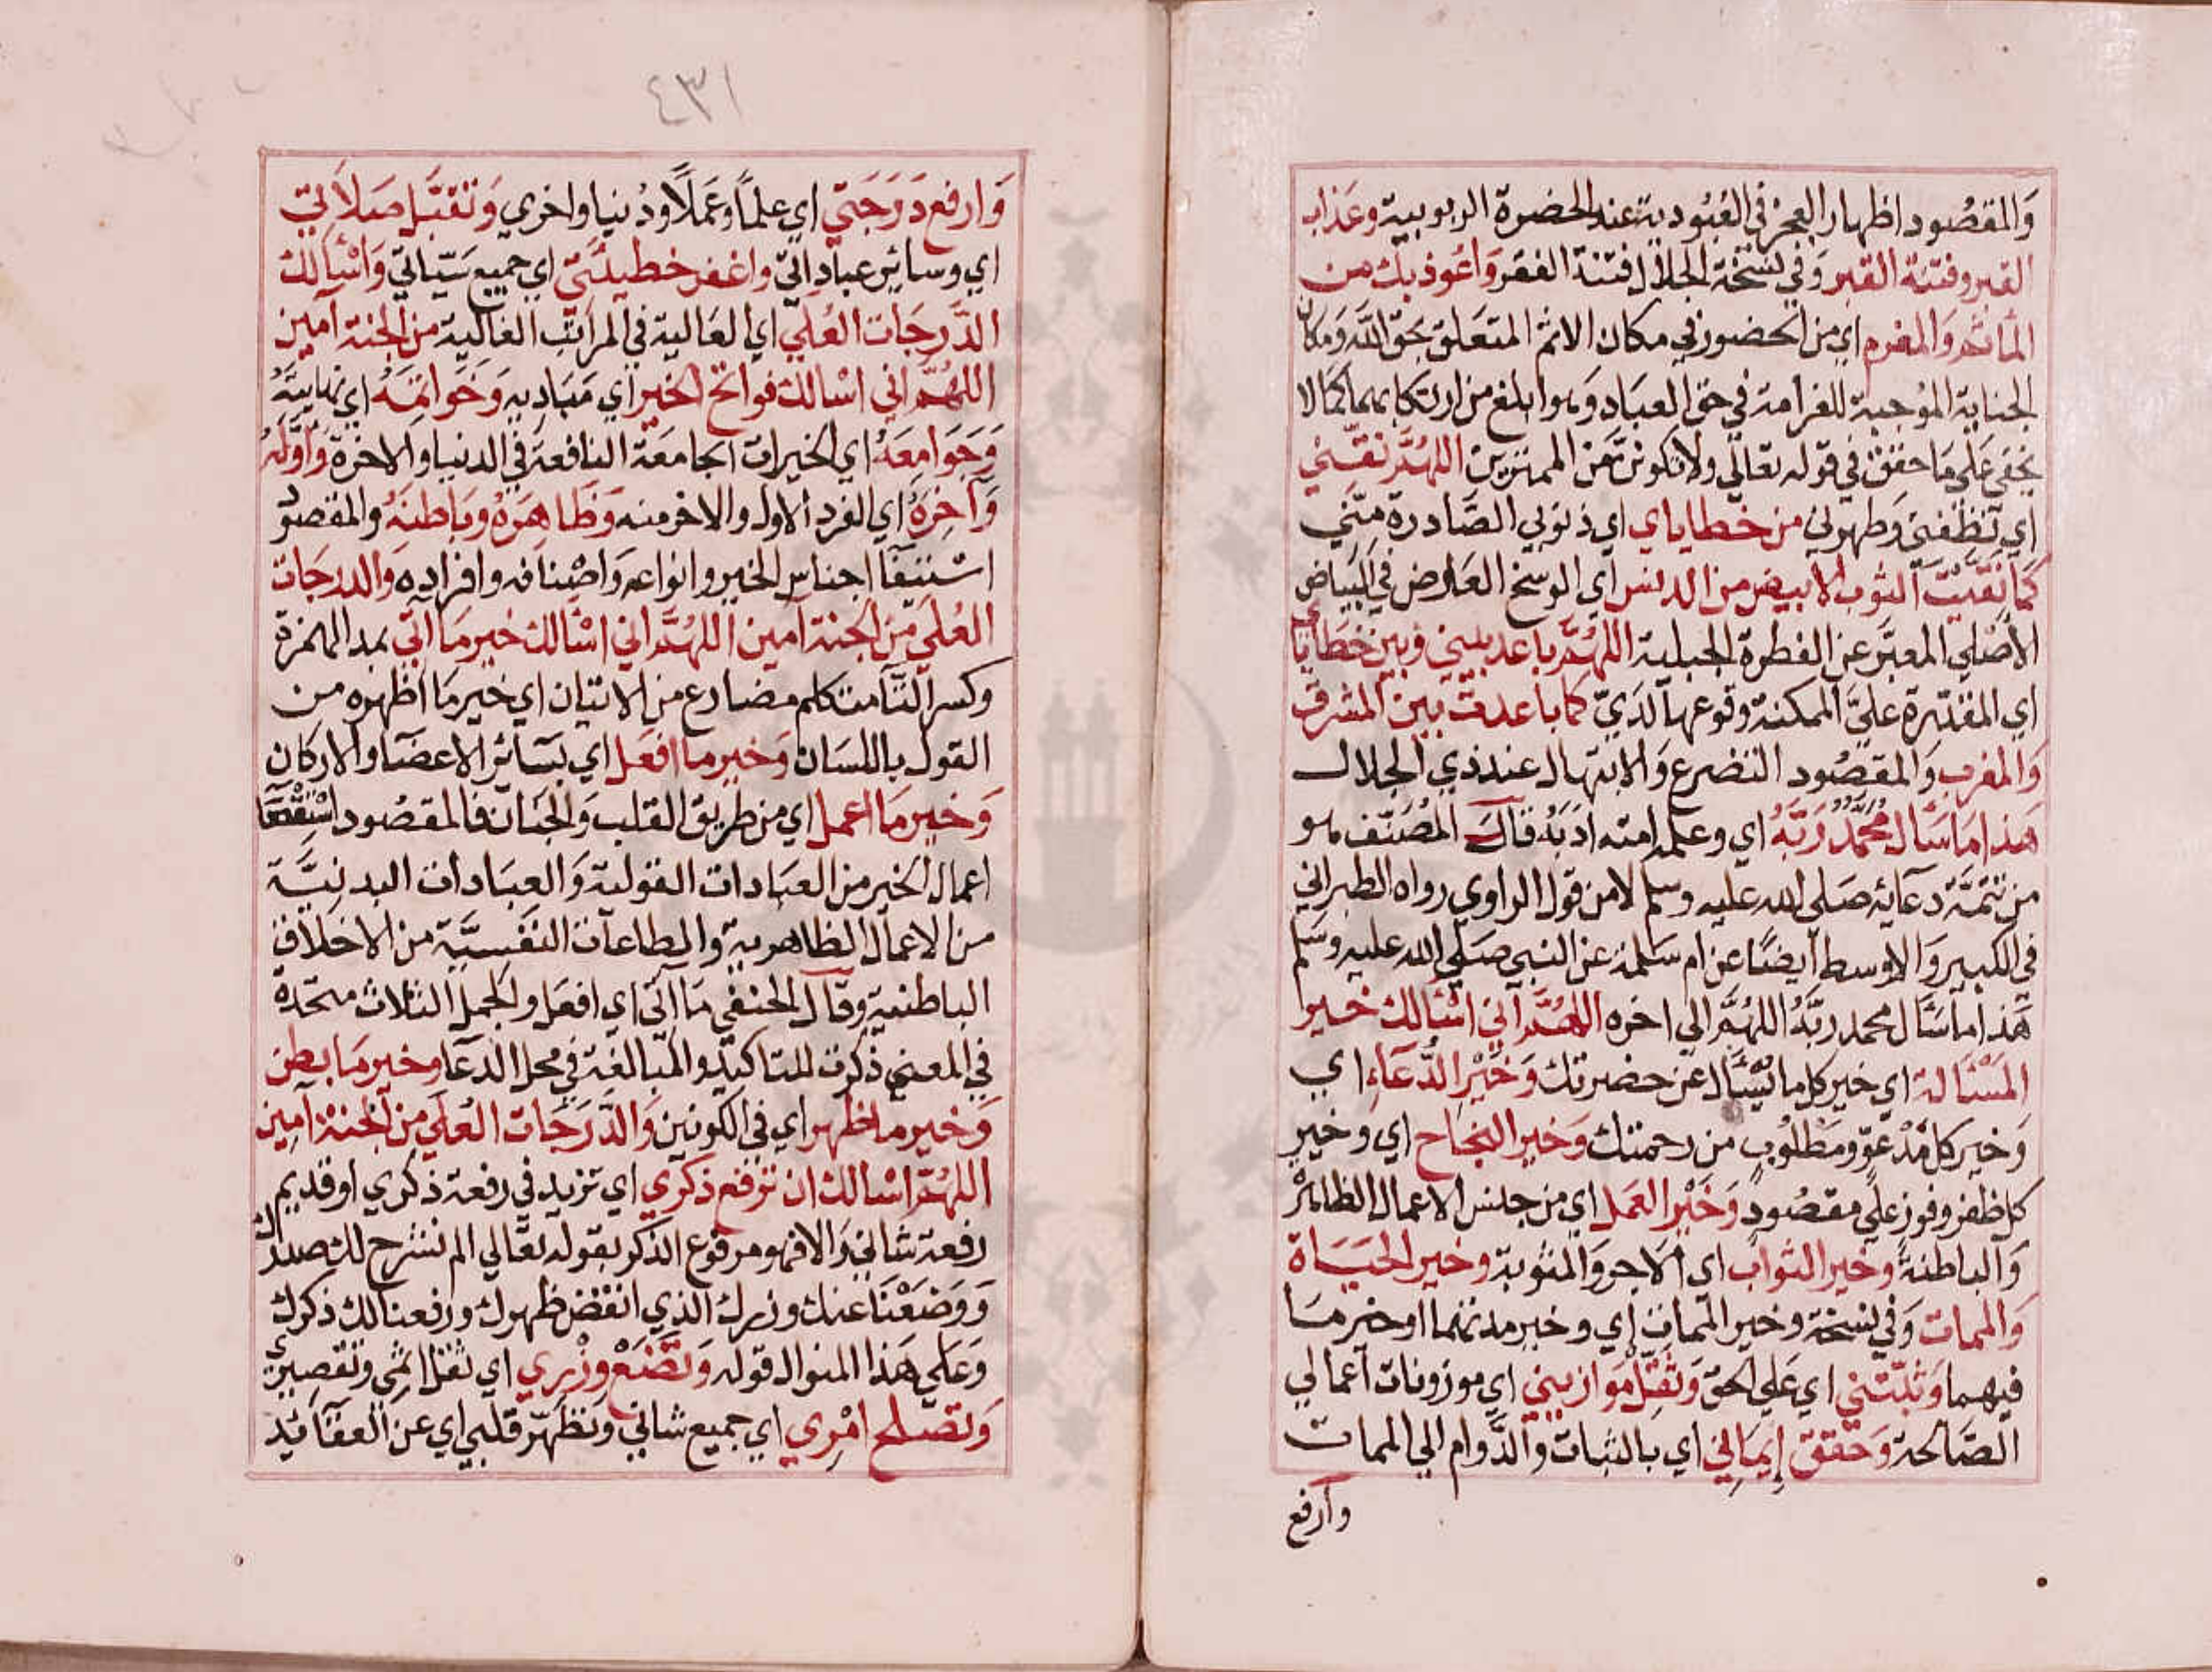 والمقصود اظهار العجز في العبودية عند الحضرة الربوبية وعذاب
القبر وفتنة القبر وفي نسخة الجلال فتنة الفقر واعوذ بك من
المأثم والمغرم اي من الحضور في مكان الاثم المتعلق بحق الله ومكان
الجناية الموجبة للغرامة في حق العباد وهو ابلغ من ارتكابهما كما لا
يخفى على ما حقق في قوله تعالى ولا تكونن من الممترين اللهم نقني
اي نظفني وطهرني من خطاياي اي ذنوبي الصادرة مني
كما نقيت الثوب الابيض من الدنس اي الوسخ العارض في البياض
الأصلي المعبر عن الفطرة الجبلية اللهم باعد بيني وبين خطاياي
اي المقدرة علي الممكنة وقوعها لدي كما باعدت بين المشرق
والمغرب والمقصود التضرع والابتهال عند ذي الجلال
هذا ما سأل محمد ربه اي وعلم امته ادبه قال المصنف هو
من تتمة دعائه صلي الله عليه وسلم لا من قول الراوي رواه الطبراني
في الكبير والاوسط أيضًا عن ام سلمة عن النبي صلي الله عليه وسلم
هذا ما سأل محمد ربه اللهم الي اخره اللهم اني اسألك خير
المسألة اي خير كل ما يسأل عن حضرتك وخير الدعاء اي
وخير كل مدعو ومطلوب من رحمتك وخير النجاح اي وخير
كل ظفر وفوز علي مقصود وخير العمل اي من جنس الاعمال الظاهرة
والباطنة وخير الثواب اي الاجر والمثوبة وخير الحياة
والممات وفي نسخة وخير الممات اي وخير مدتهما او خير ما
فيهما وثبتني اي علي الحق وثقل موازيني اي موزونات أعمالي
الصالحة وحقق إيماني اي بالثبات والدوام الي الممات
وارفع
٤٣١
وارفع درجتي اي علمًا وعملًا ودنيا واخري وتقبل صلاتي
اي وسائر عباداتي واغفر خطيئتي اي جميع سيآتي واسألك
الدرجات العلي اي العالية في المراتب الغالية من الجنة آمين
اللهم اني اسالك فواتح الخير اي مباديه وخواتمه اي نهايته
وجوامعه اي الخيرات الجامعة النافعة في الدنيا والاخرة وأوله
وآخره اي الفرد الاول والاخر منه وظاهره وباطنه والمقصود
استيفاء اجناس الخير وانواعه واصنافه وافراده والدرجات
العلي من الجنة آمين اللهم اني اسألك خير ما آتي بمد الهمزة
وكسر التاء متكلم مضارع من الاتيان اي خير ما اظهره من
القول باللسان وخير ما افعل اي بسائر الاعضا والاركان
وخير ما اعمل اي من طريق القلب والجنان فالمقصود استقصا
اعمال الخير من العبادات القولية والعبادات البدنية
من الاعمال الظاهرية والطاعات النفسية من الاخلاق
الباطنية وقال الحنفي ما آتي اي افعل والجمل الثلاث متحدة
في المعني ذكرت للتاكيد والمبالغة في محل الدعا وخير ما بطن
وخير ما ظهر اي في الكونين والدرجات العلي من الجنة آمين
اللهم اسالك ان ترفع ذكري اي تزيد في رفعة ذكري او تديم
رفعة شاني والا فهو مرفوع الذكر بقوله تعالي الم نشرح لك صدرك
ووضعنا عنك وزرك الذي انقض ظهرك ورفعنا لك ذكرك
وعلي هذا المنوال قوله وتضع وزري اي ثقل اثمي وتقصيري
وتصلح امري اي جميع شاني وتطهر قلبي اي عن العقائد